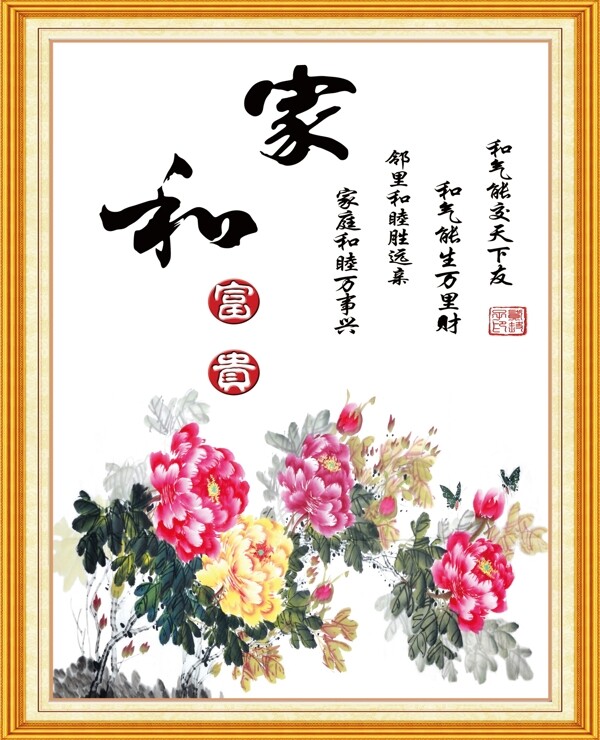 家和
富貴
和气能交天下友
和气能生万里财
邻里和睦胜远亲
家庭和睦万事兴